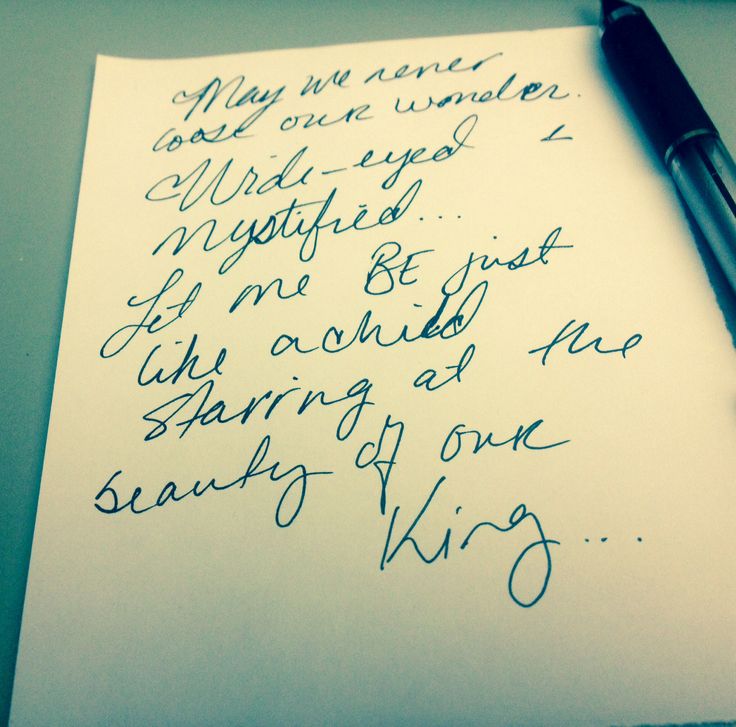 May we never
loose our wonder.
Wide-eyed &
mystified...
Let me BE just
like a child
starring at the
beauty of our
King...